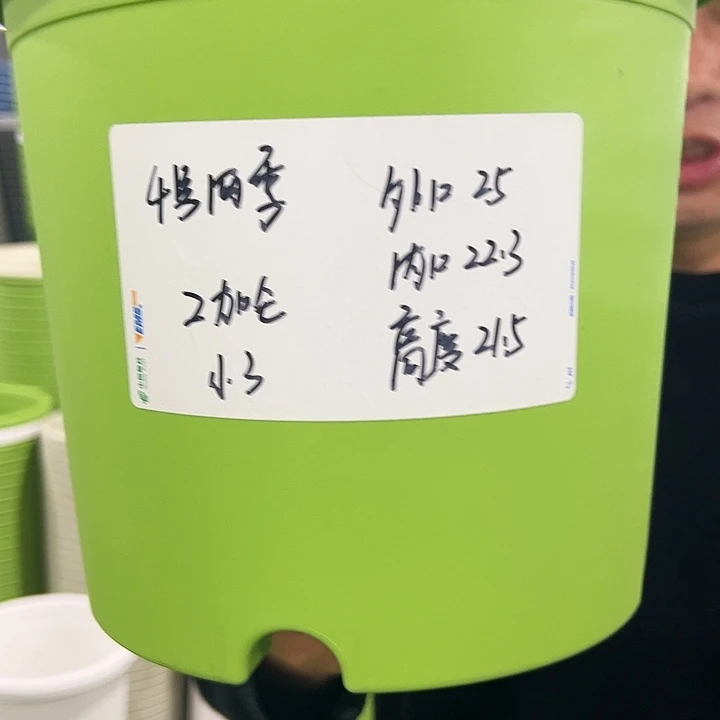 4号四季
2加仑
4.3
外口 25
内口 22.3
高度 21.5